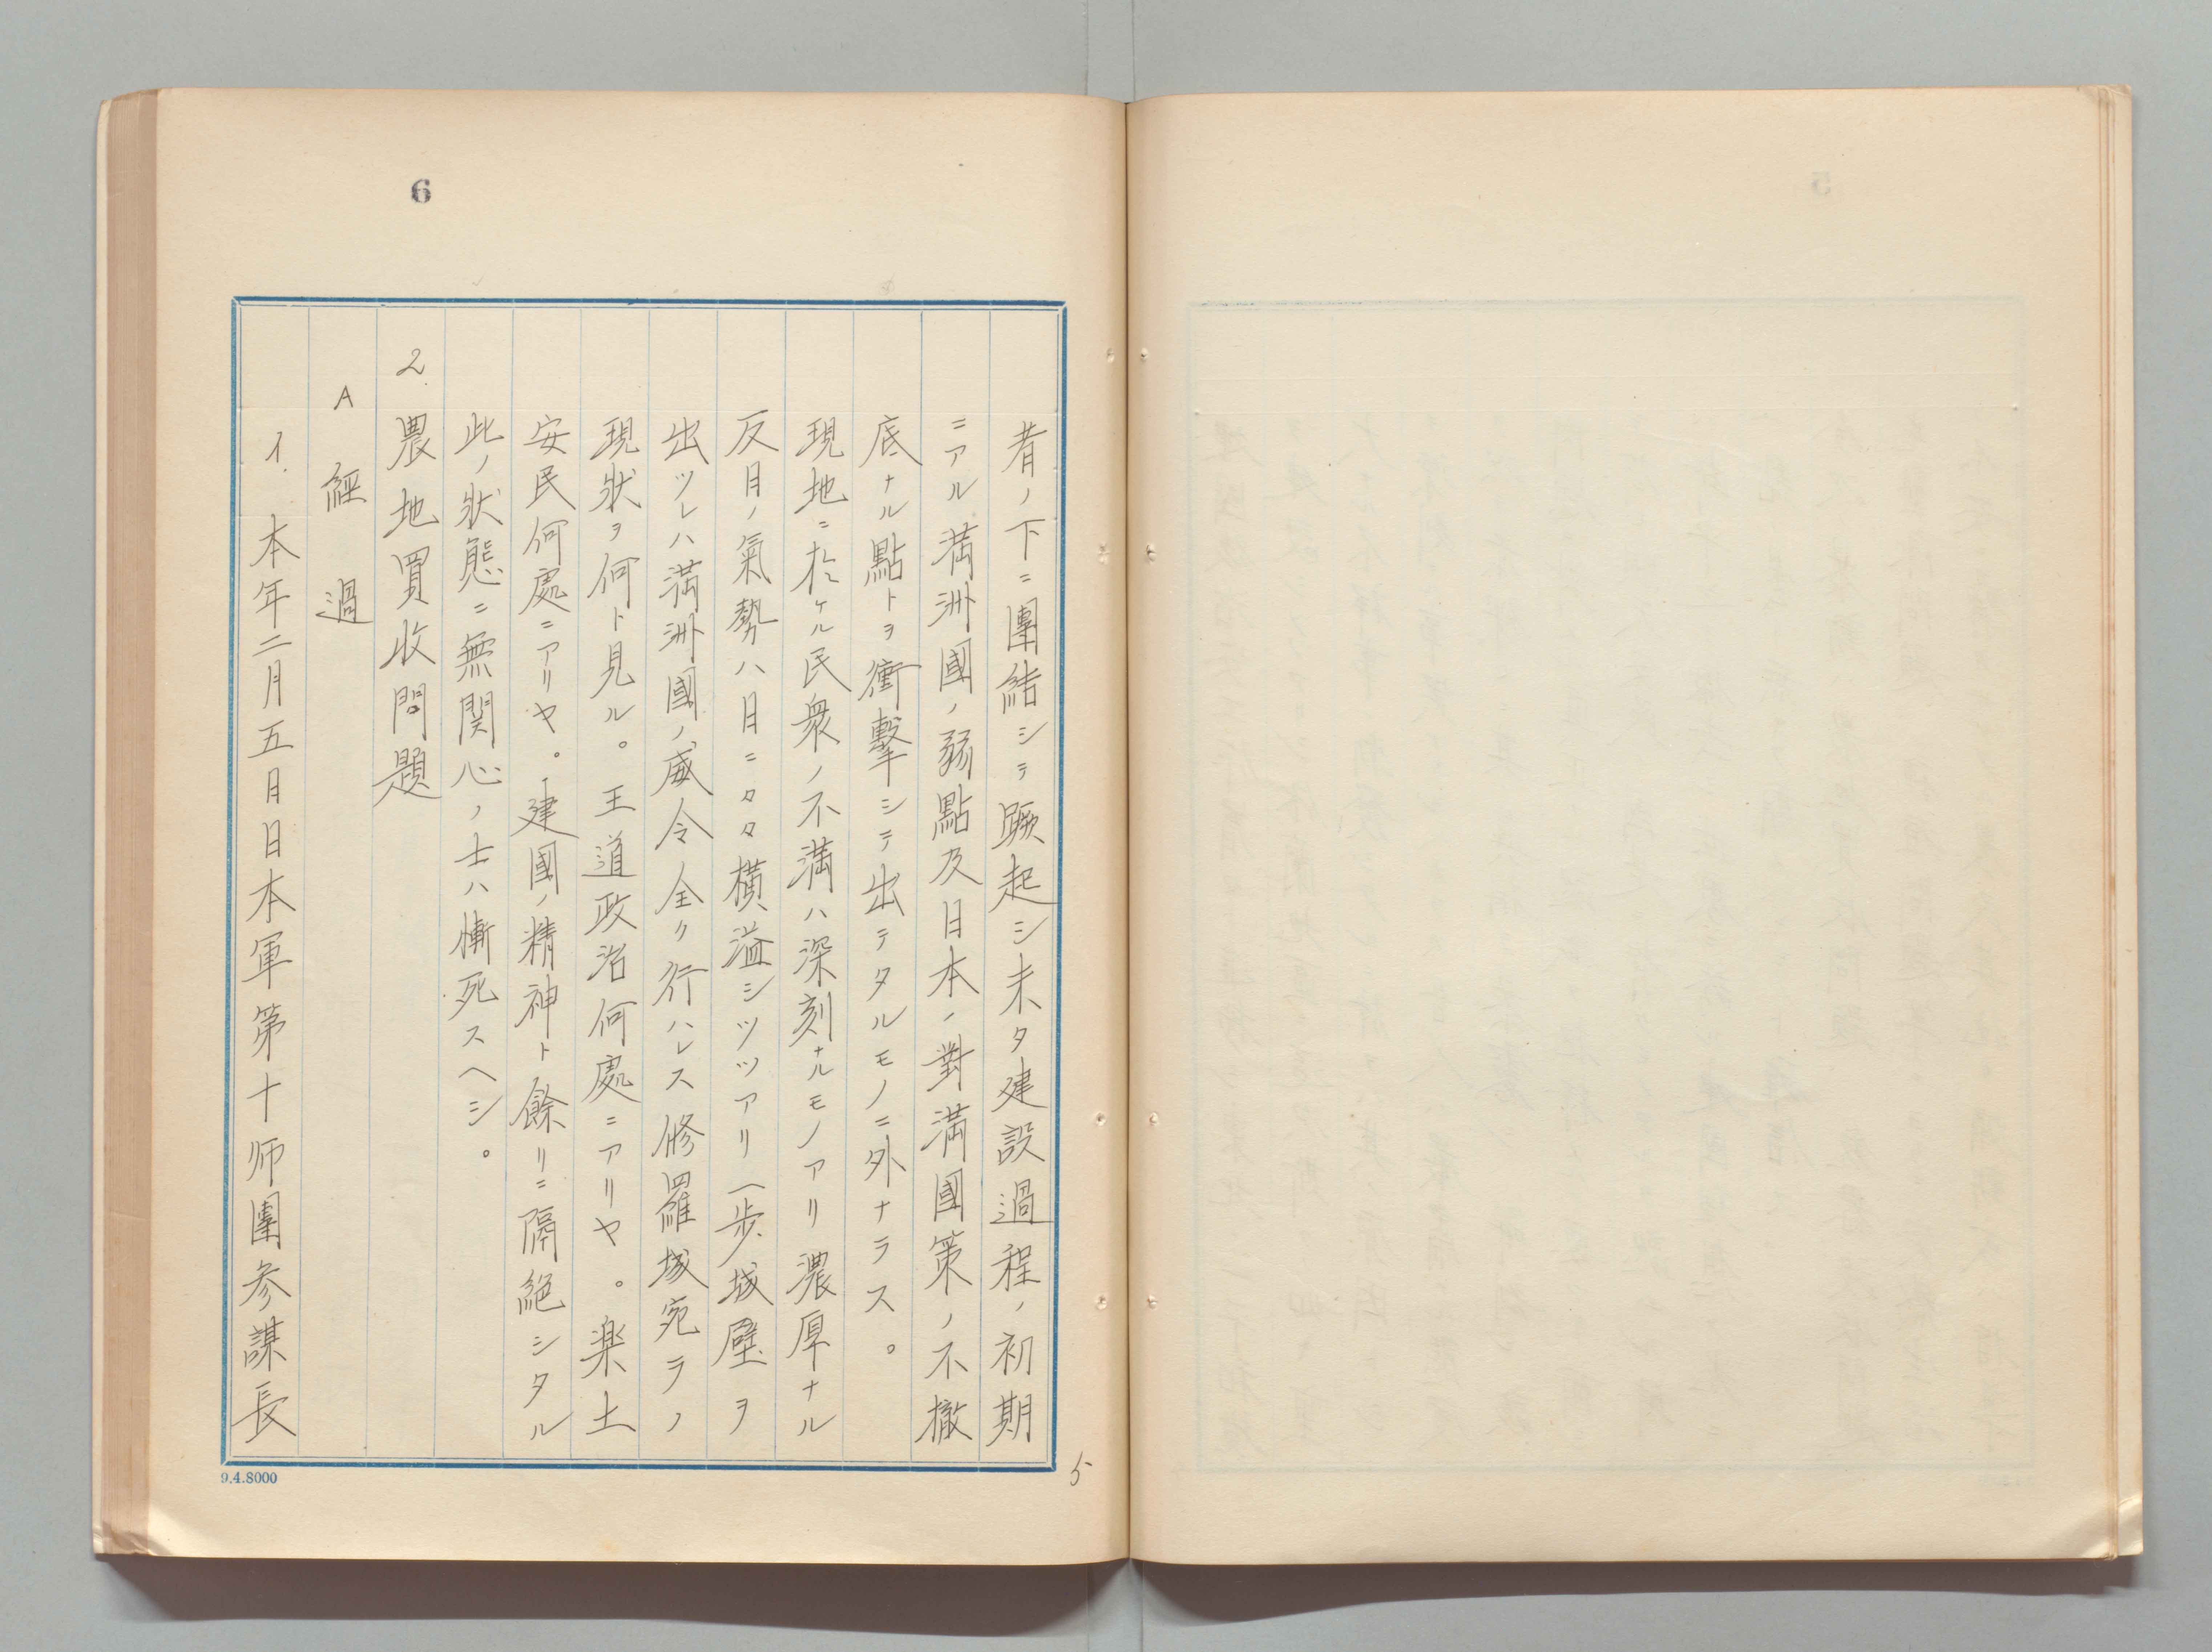 6
者ノ下ニ團結シテ蹶起シ未タ建設過程ノ初期
ニアル満洲國ノ弱點及日本ノ對満國策ノ不徹
底ナル點トヲ衝擊シテ出テタルモノニ外ナラス。
現地ニ於ケル民衆ノ不満ハ深刻ナルモノアリ濃厚ナル
反目ノ氣勢ハ日ニタタ横溢シツツアリ一歩城壁ヲ
出ツレハ満洲國ノ威令全ク行ハレス修羅場宛ラノ
現狀ヲ何ト見ル。王道政治何處ニアリヤ。楽土
安民何處ニアリヤ。建國ノ精神ト餘リニ隔絶シタル
此ノ狀態ニ無関心ノ士ハ慚死スヘシ。
2. 農地買收問題
A 經過
1. 本年二月五日日本軍第十師團参謀長
5
9.4.8000